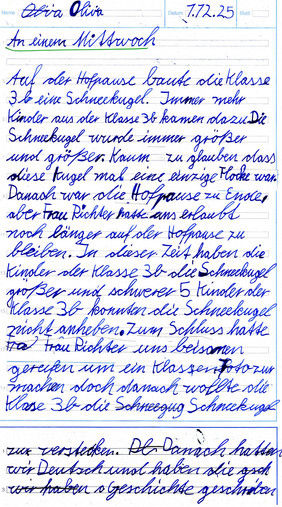 Name Oliva Oliva Datum 1.12.25 Blatt
An einem Mittwoch
Auf der Hofpause baute die Klasse
3b eine Schneekugel. Immer mehr
Kinder aus der Klasse 3b kamen dazu. Die
Schneekugel wurde immer größer
und größer. Kaum zu glauben dass
diese Kugel mal eine einzige Flocke war.
Danach war die Hofpause zu Ende,
aber Frau Richter hatte uns erlaubt
noch länger auf der Hofpause zu
bleiben. In dieser Zeit haben die
Kinder der Klasse 3b die Schneekugel
größer und schwerer 5 Kinder der
Klasse 3b konnten die Schneekugel
nicht anheben. Zum Schluss hatte
Fra Frau Richter uns
gerufen um ein Klassen Foto zur
machen doch danach wollte die
Klase 3b die Schneegug Schneekugel
zur verstecken. Danach hatten
wir Deutsch und haben die gsch
wir haben Geschichte geschriben